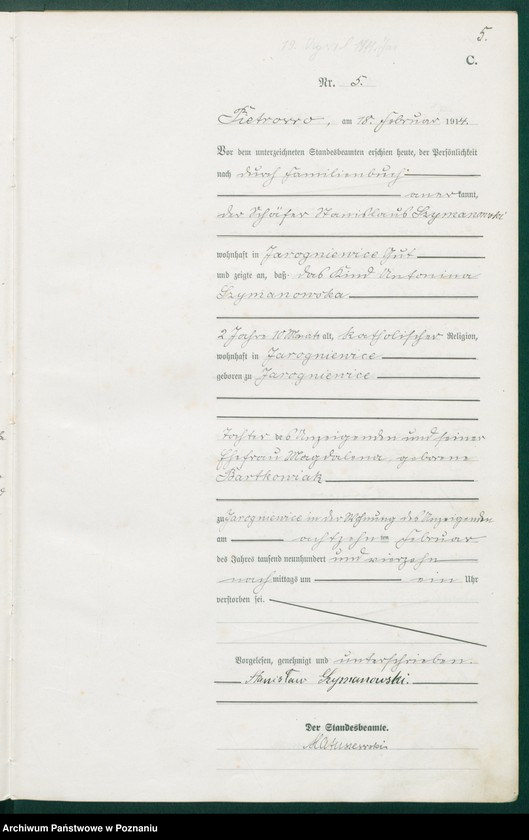 5.
C.
Nr. 5.
Pietrowo, am 18. Februar 1914.
Vor dem unterzeichneten Standesbeamten erschien heute, der Persönlichkeit
nach durch Familienbuch
anerkannt,
der Schäfer Stanislaus Szymanowski
wohnhaft in Jarogniewice Gut
und zeigte an, daß das Kind Antonina
Szymanowska
2 Jahre 10 Monate alt, katholischer Religion,
wohnhaft in Jarogniewice
geboren zu Jarogniewice
Tochter des Anzeigenden und seiner
Ehefrau Magdalena geborene
Bartkowiak
zu Jarogniewice in der Wohnung des Anzeigenden
am achtzehnten Februar
des Jahres tausend neunhundert und vierzehn
nachmittags um ein Uhr
verstorben sei.
Vorgelesen, genehmigt und unterschrieben.
Stanisław Szymanowski.
Der Standesbeamte.
Archiwum Państwowe w Poznaniu